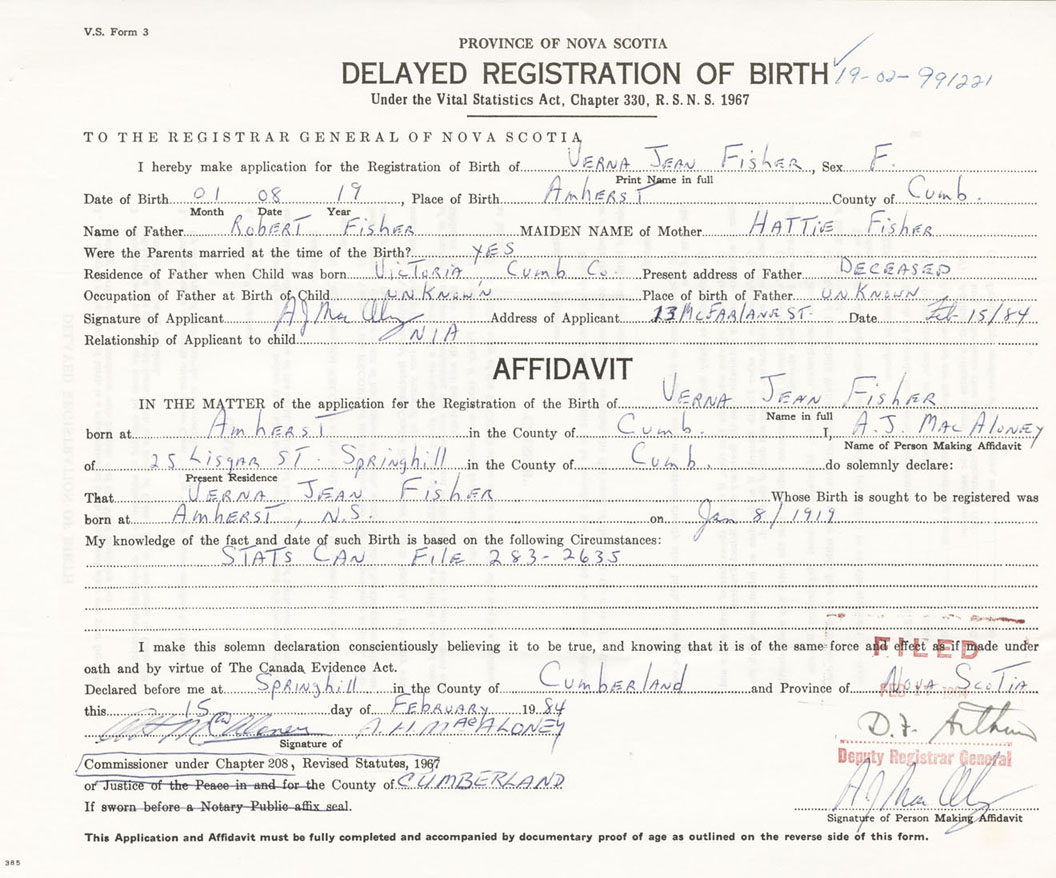 V.S. Form 3
PROVINCE OF NOVA SCOTIA
DELAYED REGISTRATION OF BIRTH 19-02-991221
Under the Vital Statistics Act, Chapter 330, R.S.N.S. 1967
TO THE REGISTRAR GENERAL OF NOVA SCOTIA
I hereby make application for the Registration of Birth of VERNA JEAN FisHER, Sex F.
Print Name in full
Date of Birth 01 08 19, Place of Birth AmHERST County of Cumb.
Month Date Year
Name of Father ROBERT FisHER MAIDEN NAME of Mother HATTiE FisHER
Were the Parents married at the time of the Birth? YES
Residence of Father when Child was born VICTORIA Cumb Co. Present address of Father DECEASED
Occupation of Father at Birth of Child UNKNOWN Place of birth of Father UNKNOWN
Signature of Applicant AJ Mac Aloney Address of Applicant 13 McFARLANE ST. Date Feb 15/84
Relationship of Applicant to child N/A
AFFIDAVIT
IN THE MATTER of the application for the Registration of the Birth of VERNA JEAN FisHER
Name in full
born at AmHERST in the County of Cumb. I, A.J. MAC ALONEY
Name of Person Making Affidavit
of 25 LISGAR ST. SPRINGHill in the County of Cumb. do solemnly declare:
Present Residence
That VERNA JEAN FisHER Whose Birth is sought to be registered was
born at AmHERST, N.S. on Jan 8/1919
My knowledge of the fact and date of such Birth is based on the following Circumstances:
STATS CAN FilE 283-2635
I make this solemn declaration conscientiously believing it to be true, and knowing that it is of the same force and effect as if made under
FILED
oath and by virtue of The Canada Evidence Act.
Declared before me at SPRINGHill in the County of CUMBERLAND and Province of NOVA SCOTIA
this 15 day of FEBRUARY 1984
A.H. MacALONEY
D.F. Arthur
Signature of
Deputy Registrar General
Commissioner under Chapter 208, Revised Statutes, 1967
or Justice of the Peace in and for the County of CUMBERLAND
If sworn before a Notary Public affix seal.
AJ Mac Aloney
Signature of Person Making Affidavit
This Application and Affidavit must be fully completed and accompanied by documentary proof of age as outlined on the reverse side of this form.
385